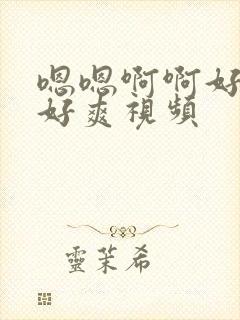 嗯嗯啊啊好
好爽視頻
靈茉希